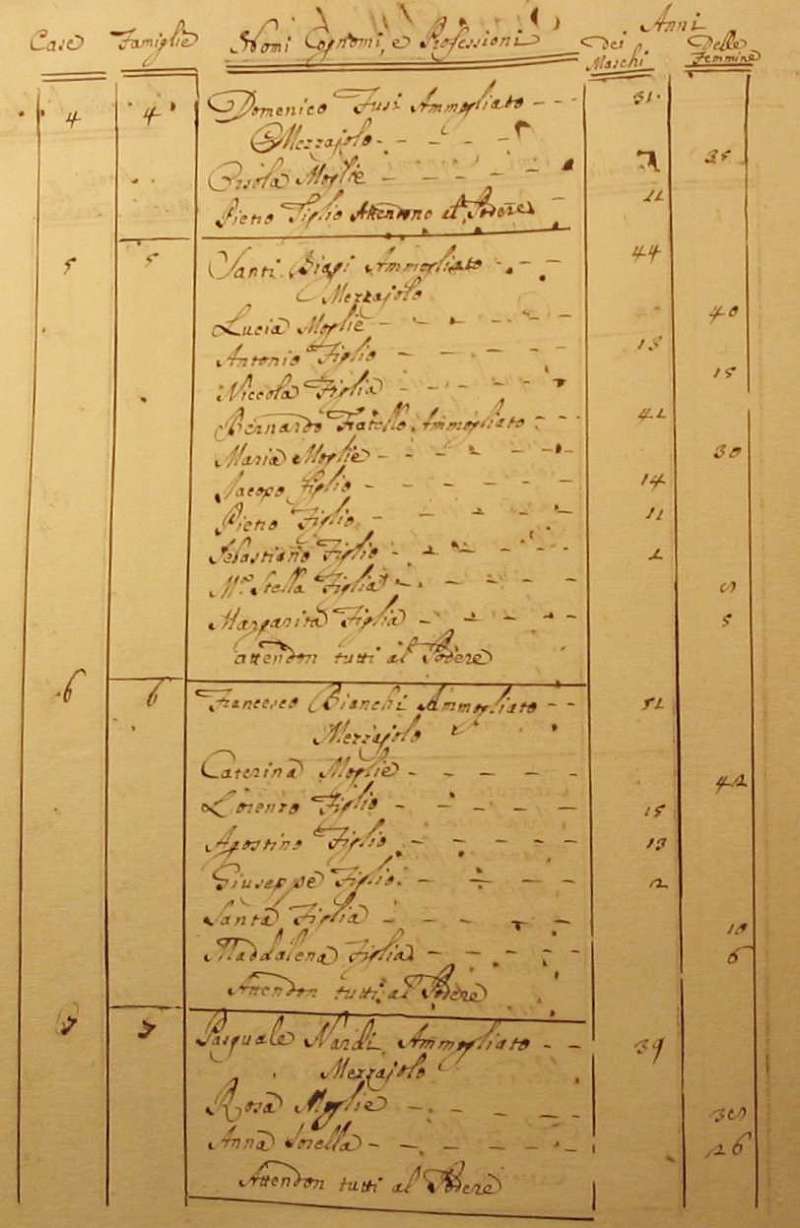 Case Famiglie Nomi Cognomi, e Professioni Anni
Dei Maschi Delle Femmine
4 4 Domenico Fusi Ammogliato - - - 51
Mezzajolo - - - -
Orsola Moglie - - - - - 35
Pietro Figlio Attendono al Podere - 11
5 5 Santi Biagi Ammogliato - - - 44
Mezzajolo
Lucia Moglie - - - - - 40
Antonio Figlio - - - - - 13
Niccola Figlia - - - - - 15
Bernardo Fratello Ammogliato - - 41
Maria Moglie - - - - - - 30
Jacopo Figlio - - - - - - 14
Pietro Figlio - - - - - 11
Sebastiano Figlio - - - - - 2
Mª Stella Figlia - - - - -
Margarita Figlia - - - - - 5
attendon tutti al Podere
6 6 Francesco Bianchi Ammogliato - - 51
Mezzajolo
Caterina Moglie - - - - - 42
Lorenzo Figlio - - - - - 15
Agostino Figlio - - - - - 13
Giuseppe Figlio - - - - 2
Santa Figlia - - - - -
Maddalena Figlia - - - - - 6
Attendon tutti al Podere
7 7 Pasquale Nardi Ammogliato - - 39
Mezzajolo
Rosa Moglie - - - - - 30
Anna Sorella - - - - - - 26
Attendon tutti al Podere